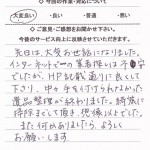 ◇今回の作業・対応について
大変良い ・良い ・普通 ・悪い
◇ご意見・ご感想をお聞かせ下さい。
今後のサービス向上に反映させていただきます。
先日は、大変お世話になりました。
インターネットでの業者探しは不安
でしたが、HP記載通りに良くして
下さり、中々手を付けられなかった
遺品整理が終わりました。綺麗に
掃除までして頂き、想像以上でした。
また何かありましたら、よろしく
お願いします。